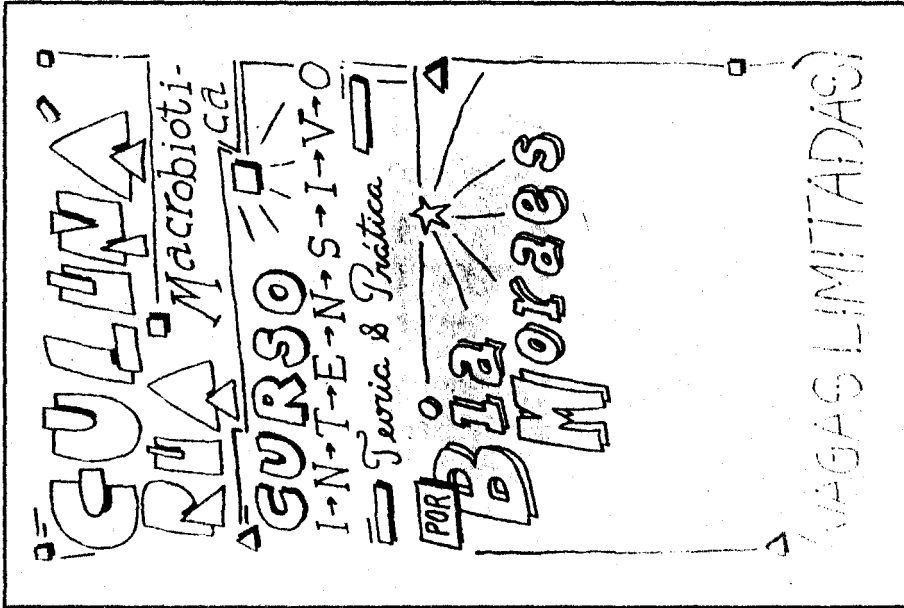 CULINÁ
RIA Macrobióti-
ca
CURSO
I→N→T→E→N→S→I→V→O
Teoria & Prática
POR
Bia
Moraes
VAGAS LIMITADAS!